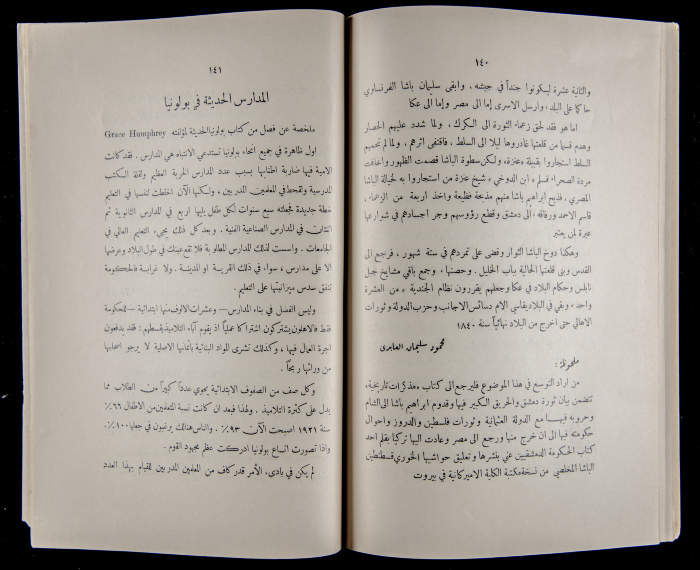 ١٤٠
والثانية عشرة ليكونوا جنداً في جيشه . وابقى سليمان باشا الفرنساوي
حاكماً على البلد ، وارسل الاسرى إما الى مصر وإما الى عكا
اما هو فقد لحق زعماء الثورة الى الكرك ، ولما شدد عليهم الحصار
وهدم قسماً من قلعتها غادروها ليلا الى السلط ، فاقتفى اثرهم ، ولما لم تحمهم
السلط استجاروا بقبيلة «عنزة» ولكن سطوة الباشا قصمت الظهور واخافت
مردة الصحراء فسلم « ابن الدوخي » شيخ عنزة من استجاروا به لخيالة الباشا
المصري ، فذبح ابراهيم باشا منهم مذبحة فظيعة واخذ اربعة من الزعماء ،
قاسم الاحمد ورفاقه ، الى دمشق وقطع رؤوسهم وجر اجسادهم في شوارعها
عبرة لمن يعتبر
وهكذا دوخ الباشا الثوار وقضى على تمردهم في ستة شهور ، فرجع الى
القدس وبنى قلعتها الحالية باب الخليل . وحصنها ، وجمع باقي مشايخ جبل
نابلس وحكام البلاد في عكا وجعلهم يقررون نظام الجندية « من العشرة
واحد » وبقي في البلاد يقاسي الام دسائس الاجانب وحزب الدولة وثورات
الاهالي حتى اخرج من البلاد نهائياً سنة ١٨٤٠
محمود سليمان العابري
ملحوظة :
من اراد التوسع في هذا الموضوع فليرجع الى كتاب «مذكرات تاريخية»
تتضمن بيان ثورة دمشق والحريق الكبير فيها وقدوم ابراهيم باشا الى الشام
وحروبه فيها مع الدولة العثمانية وثورات فلسطين والدروز واحوال
حكومته فيها الى ان خرج منها ورجع الى مصر وعادت البها تركيا بقلم احد
كتاب الحكومة الدمشقيين عني بنشرها وتعليق حواشيها الخوري قسطنطين
الباشا المخلصي من نسخة مكتبة الكلية الاميركانية في بيروت
١٤١
المدارس الحديثة في بولونيا
ملخصة عن فصل من كتاب بولونيا الحديثة لمؤلفته Grace Humphrey
اول ظاهرة في جميع انحاء بولونيا تستدعي الانتباه هي المدارس . فقد كانت
الامية فيها ضاربة اطنابها بسبب عدد مدارس الحربة العظيم وقلة الكتب
المدرسية والقحط في المعلمين المدربين ، ولكنها الآن اختطت لنفسها في التعليم
خطة جديدة فجعلته سبع سنوات لكل طفل يليها اربع في المدارس الثانوية ثم
اثنتان في المدارس الصناعية الفنية . وبعد كل ذلك يجيء التعليم العالي في
الجامعات . واسست لذلك المدارس المطلوبة فلا تقع عينك في طول البلاد وعرضها
الا على مدارس ، سواء في ذلك القرية او المدينة . ولا غرابة فالحكومة
تنفق سدس ميزانيتها على التعليم .
وليس الفضل في بناء المدارس — وعشرات الالوف منها ابتدائية — للحكومة
فقط فالاهلون يشتركون اشتراكاً عملياً اذ يقوم آباء التلاميذ بقسطهم : فقد يدفعون
اجرة العمال فيها ، وكذلك تشرى المواد البنائية بأثمانها الاصلية لا يرجو اصحابها
من ورائها ربحاً .
وكل صف من الصفوف الابتدائية يحوي عدداً كبيراً من الطلاب مما
يدل على كثرة التلاميذ . ولهذا فبعد ان كانت نسبة المتعلمين من الاطفال ٦٦٪
سنة ١٩٢١ اصبحت الآن ٩٣٪ . والناس هنالك يرغبون في جعلها ١٠٠٪ .
واذا تصورت اتساع بولونيا ادركت عظم مجهود القوم .
لم يكن في بادىء الأمر قدر كاف من المعلمين المدربين للقيام بهذا العدد